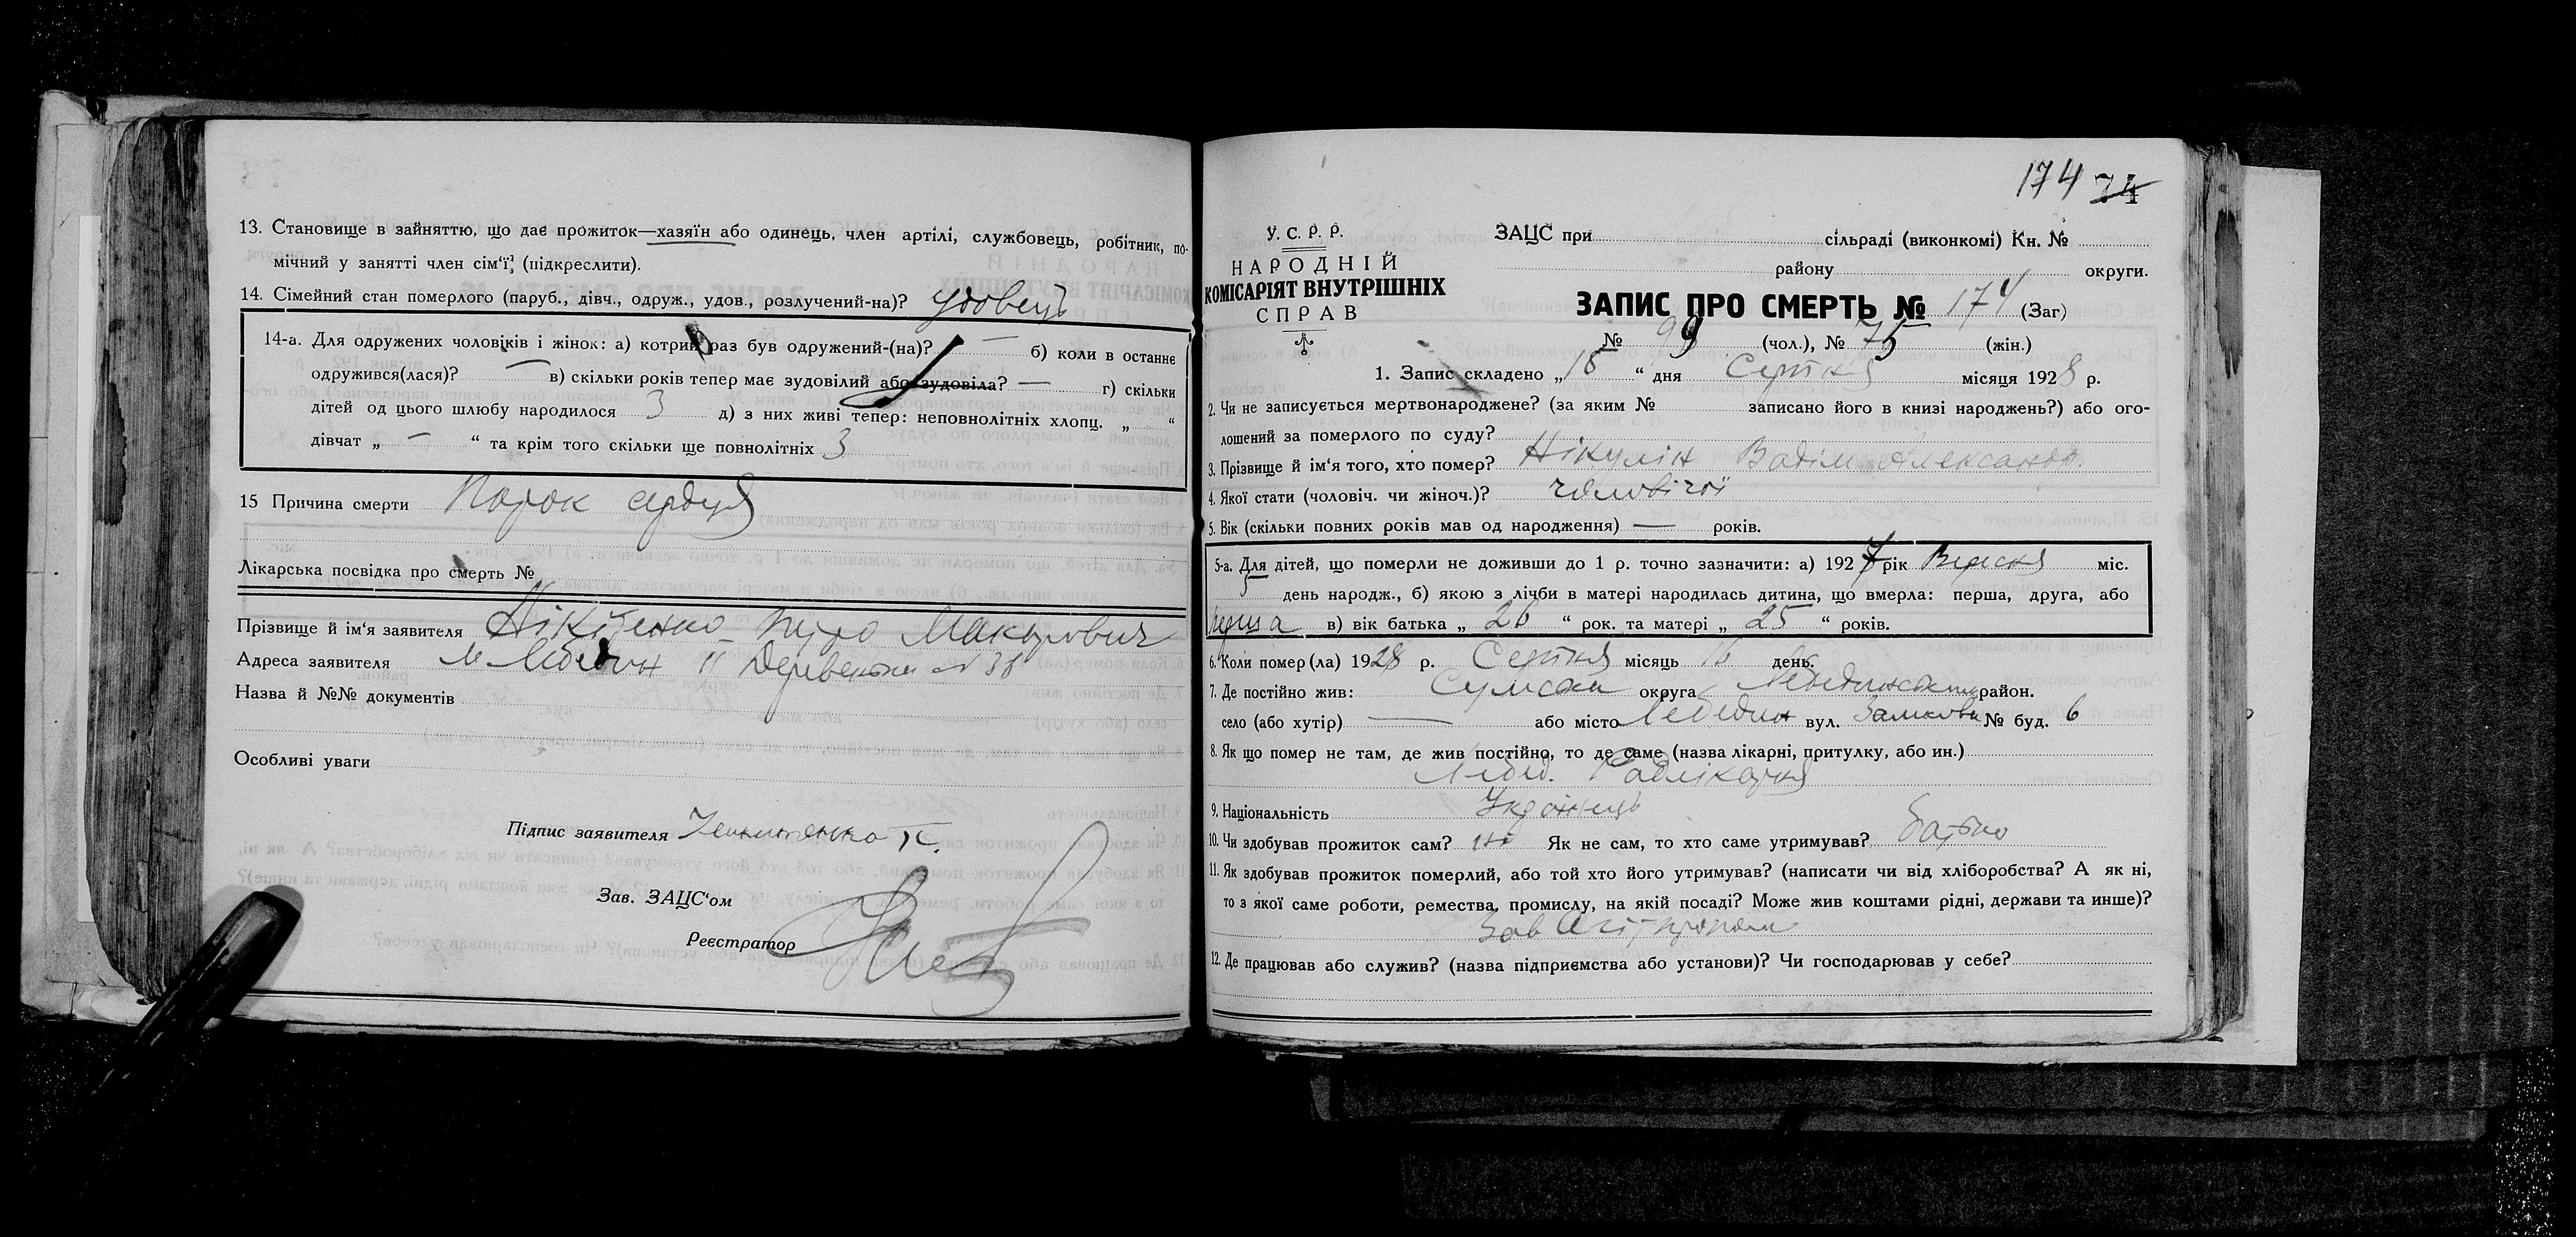 13. Становище в зайняттю, що дає прожиток—хазяїн або одинець, член артілі, службовець, робітник, по-
мічний у занятті член сім'ї, (підкреслити).
14. Сімейний стан померлого (паруб., дівч., одруж., удов., розлучений-на)? удовець
14-а. Для одружених чоловіків і жінок: а) котрий раз був одружений-(на)? — б) коли в останнє
одружився(лася)? — в) скільки років тепер має зудовілий або зудовіла? — г) скільки
дітей од цього шлюбу народилося 3 д) з них живі тепер: неповнолітніх хлопц. „ “
дівчат „ — “ та крім того скільки ще повнолітніх 3
15 Причина смерти Порок сердця
Лікарська посвідка про смерть №
Прізвище й ім'я заявителя Нікітенко Петро Макарович
Адреса заявителя м Лебедин II Деревенька N 38
Назва й №№ документів
Особливі уваги
Підпис заявителя
Зав. ЗАЦС'ом
Реєстратор
174 74
У. С. Р. Р.
НАРОДНІЙ
КОМІСАРІЯТ ВНУТРІШНІХ
СПРАВ
ЗАЦС при сільраді (виконкомі) Кн. №
району округи.
ЗАПИС ПРО СМЕРТЬ № 174 (Заг)
№ 99 (чол.), № 75 (жін.)
1. Запис складено „18 “ дня Серпня місяця 1928 р.
2. Чи не записується мертвонароджене? (за яким № записано його в книзі народжень?) або ого-
лошений за померлого по суду?
3. Прізвище й ім'я того, хто помер? Нікулін Вадім Александр.
4. Якої стати (чоловіч. чи жіноч.)? чоловічої
5. Вік (скільки повних років мав од народження) — років.
5-а. Для дітей, що померли не доживши до 1 р. точно зазначити: а) 1927 рік Вересня міс.
5 день народж., б) якою з лічби в матері народилась дитина, що вмерла: перша, друга, або
перша в) вік батька „ 26 “ рок. та матері „ 25 “ років.
6. Коли помер(ла) 1928 р. Серпня місяць день.
7. Де постійно жив: Сумська округа Лебединський район.
село (або хутір) — або місто Лебедин вул. Замкова № буд. 6
8. Як що помер не там, де жив постійно, то де саме (назва лікарні, притулку, або ин.)
Лебед. Райлікарня
9. Національність Українець
10. Чи здобував прожиток сам? ні Як не сам, то хто саме утримував? батько
11. Як здобував прожиток померлий, або той хто його утримував? (написати чи від хліборобства? А як ні,
то з якої саме роботи, ремества, промислу, на якій посаді? Може жив коштами рідні, держави та инше)?
Зав Агітпропом
12. Де працював або служив? (назва підприємства або установи)? Чи господарював у себе?